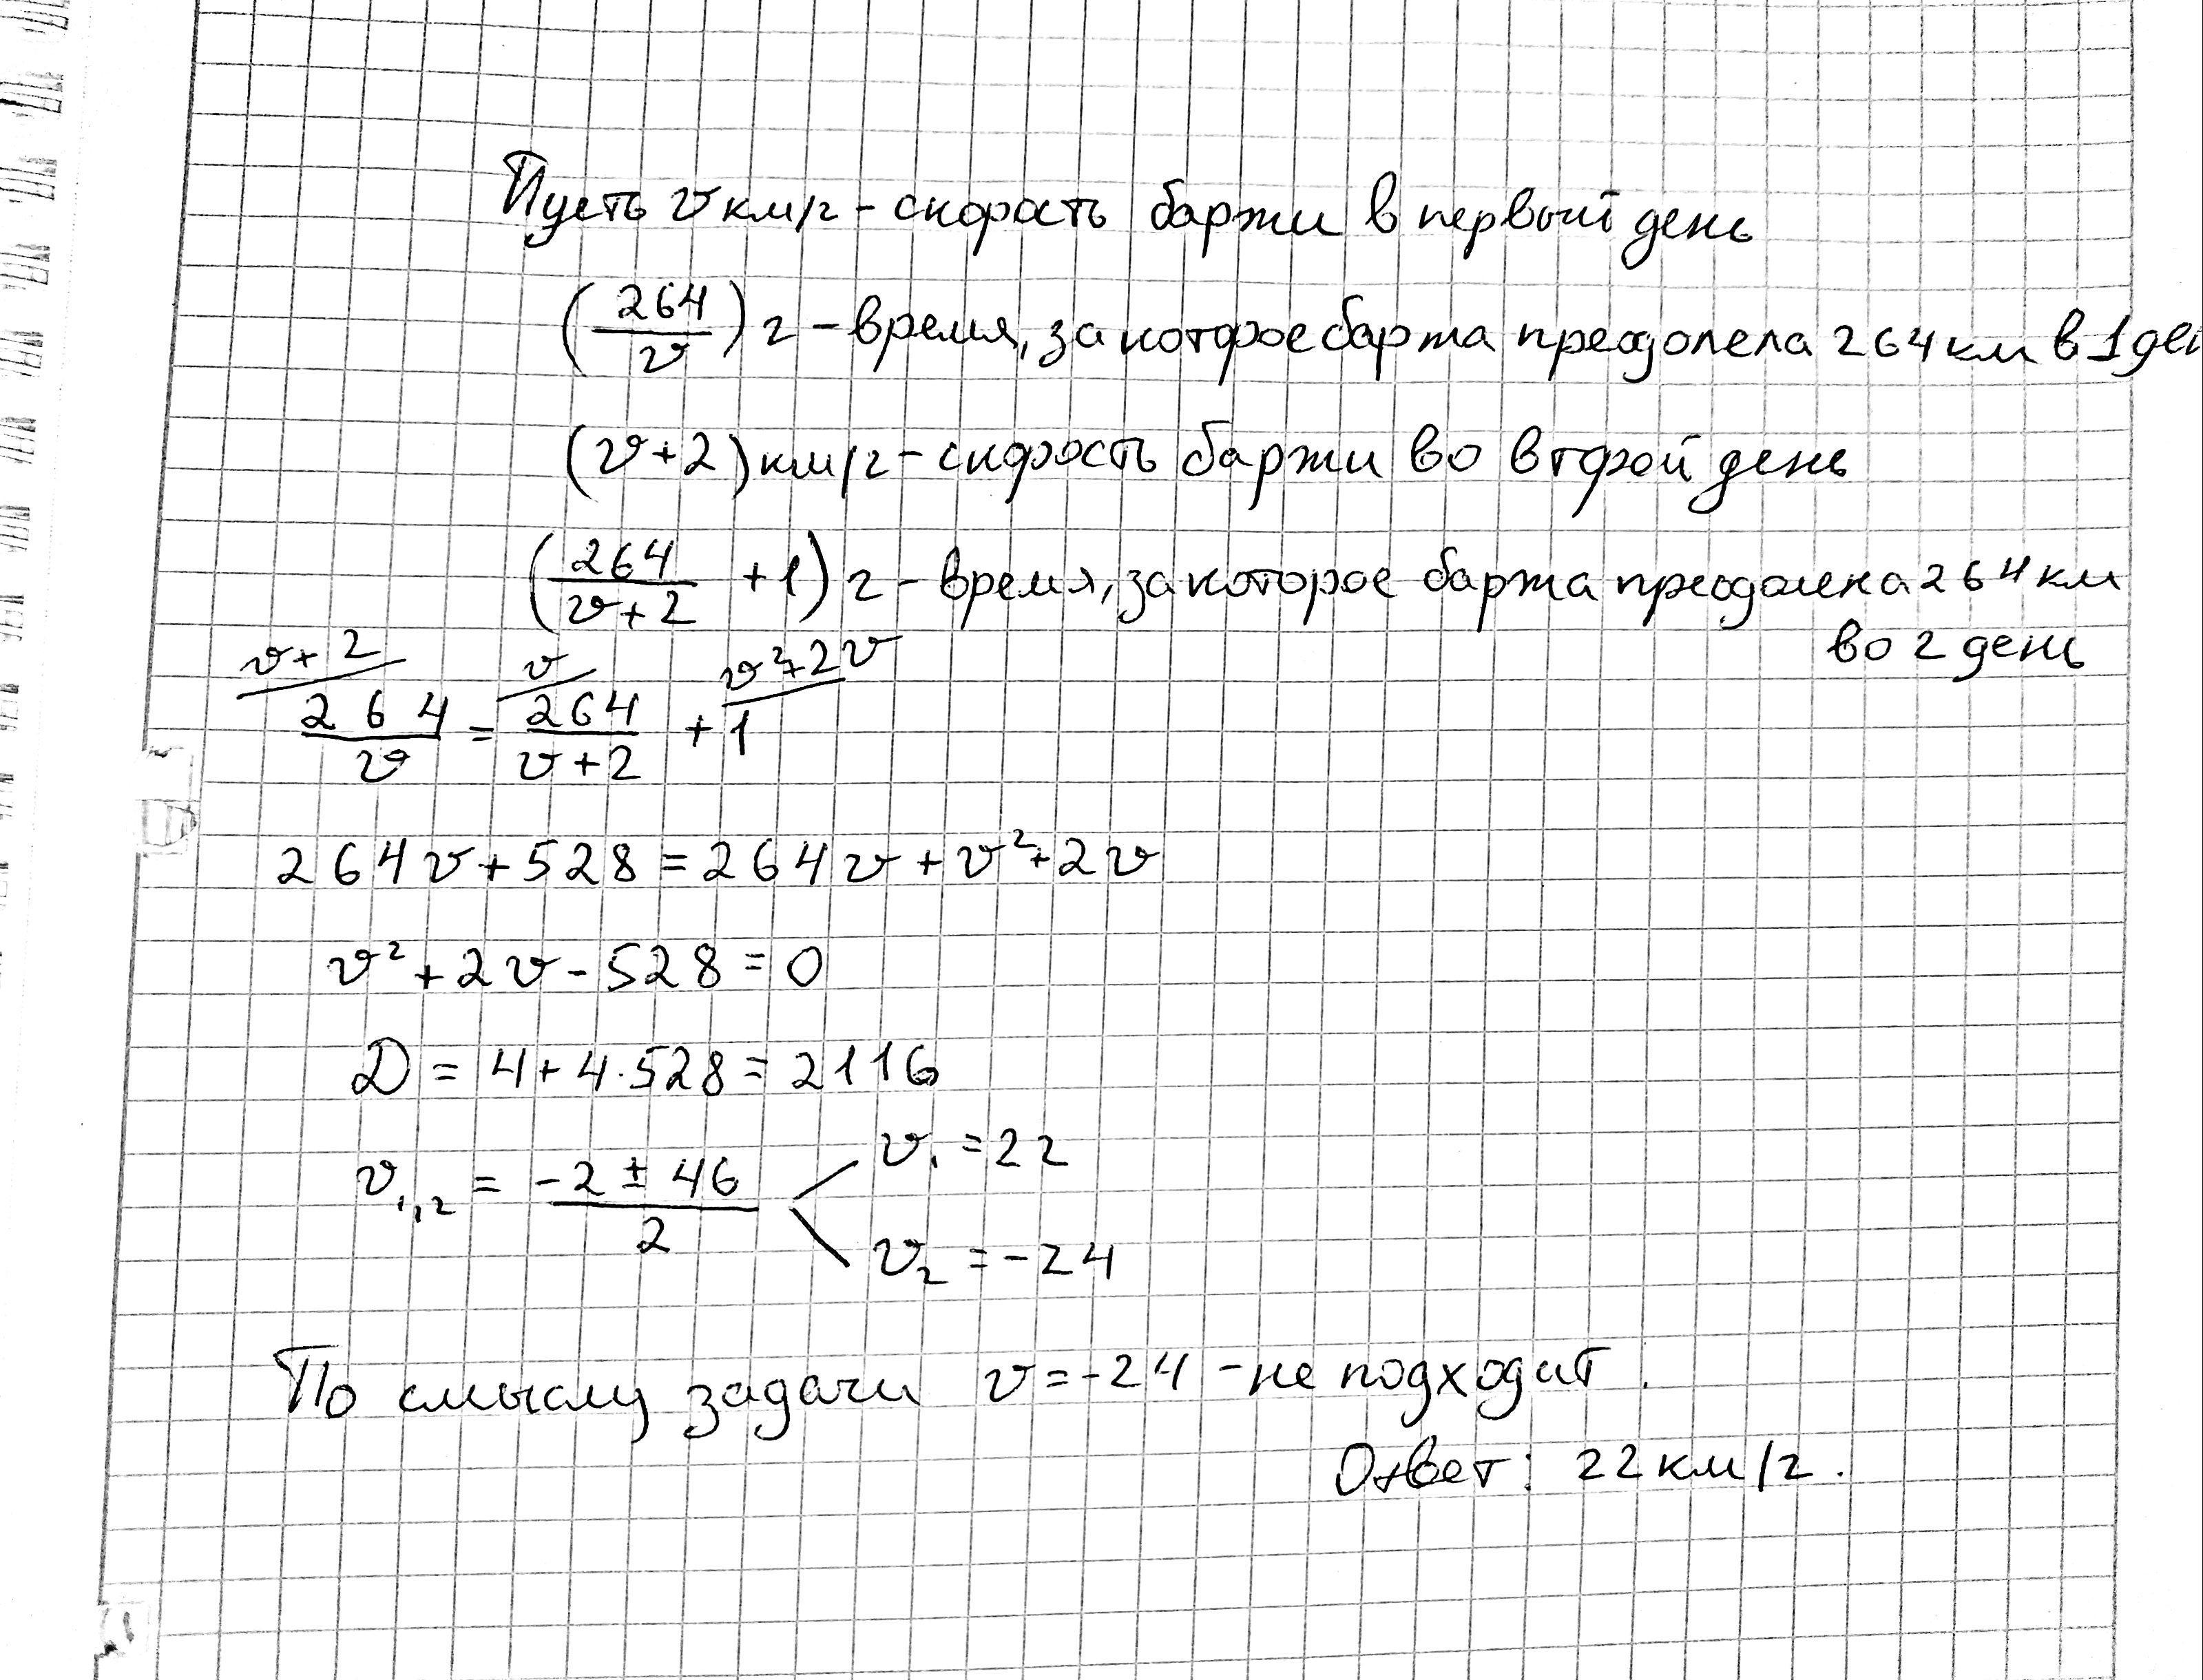 Пусть v км/ч - скорость баржи в первый день
(264/v) ч - время, за которое баржа преодолела 264 км в 1 ден
(v+2) км/ч - скорость баржи во второй день
(264/(v+2) + 1) ч - время, за которое баржа преодолена 264 км
во 2 день
v+2 v v²+2v
264/v = 264/(v+2) + 1
264v + 528 = 264v + v² + 2v
v² + 2v - 528 = 0
D = 4 + 4·528 = 2116
v₁,₂ = (-2 ± 46)/2
v₁ = 22
v₂ = -24
По смыслу задачи v = -24 - не подходит.
Ответ: 22 км/ч.